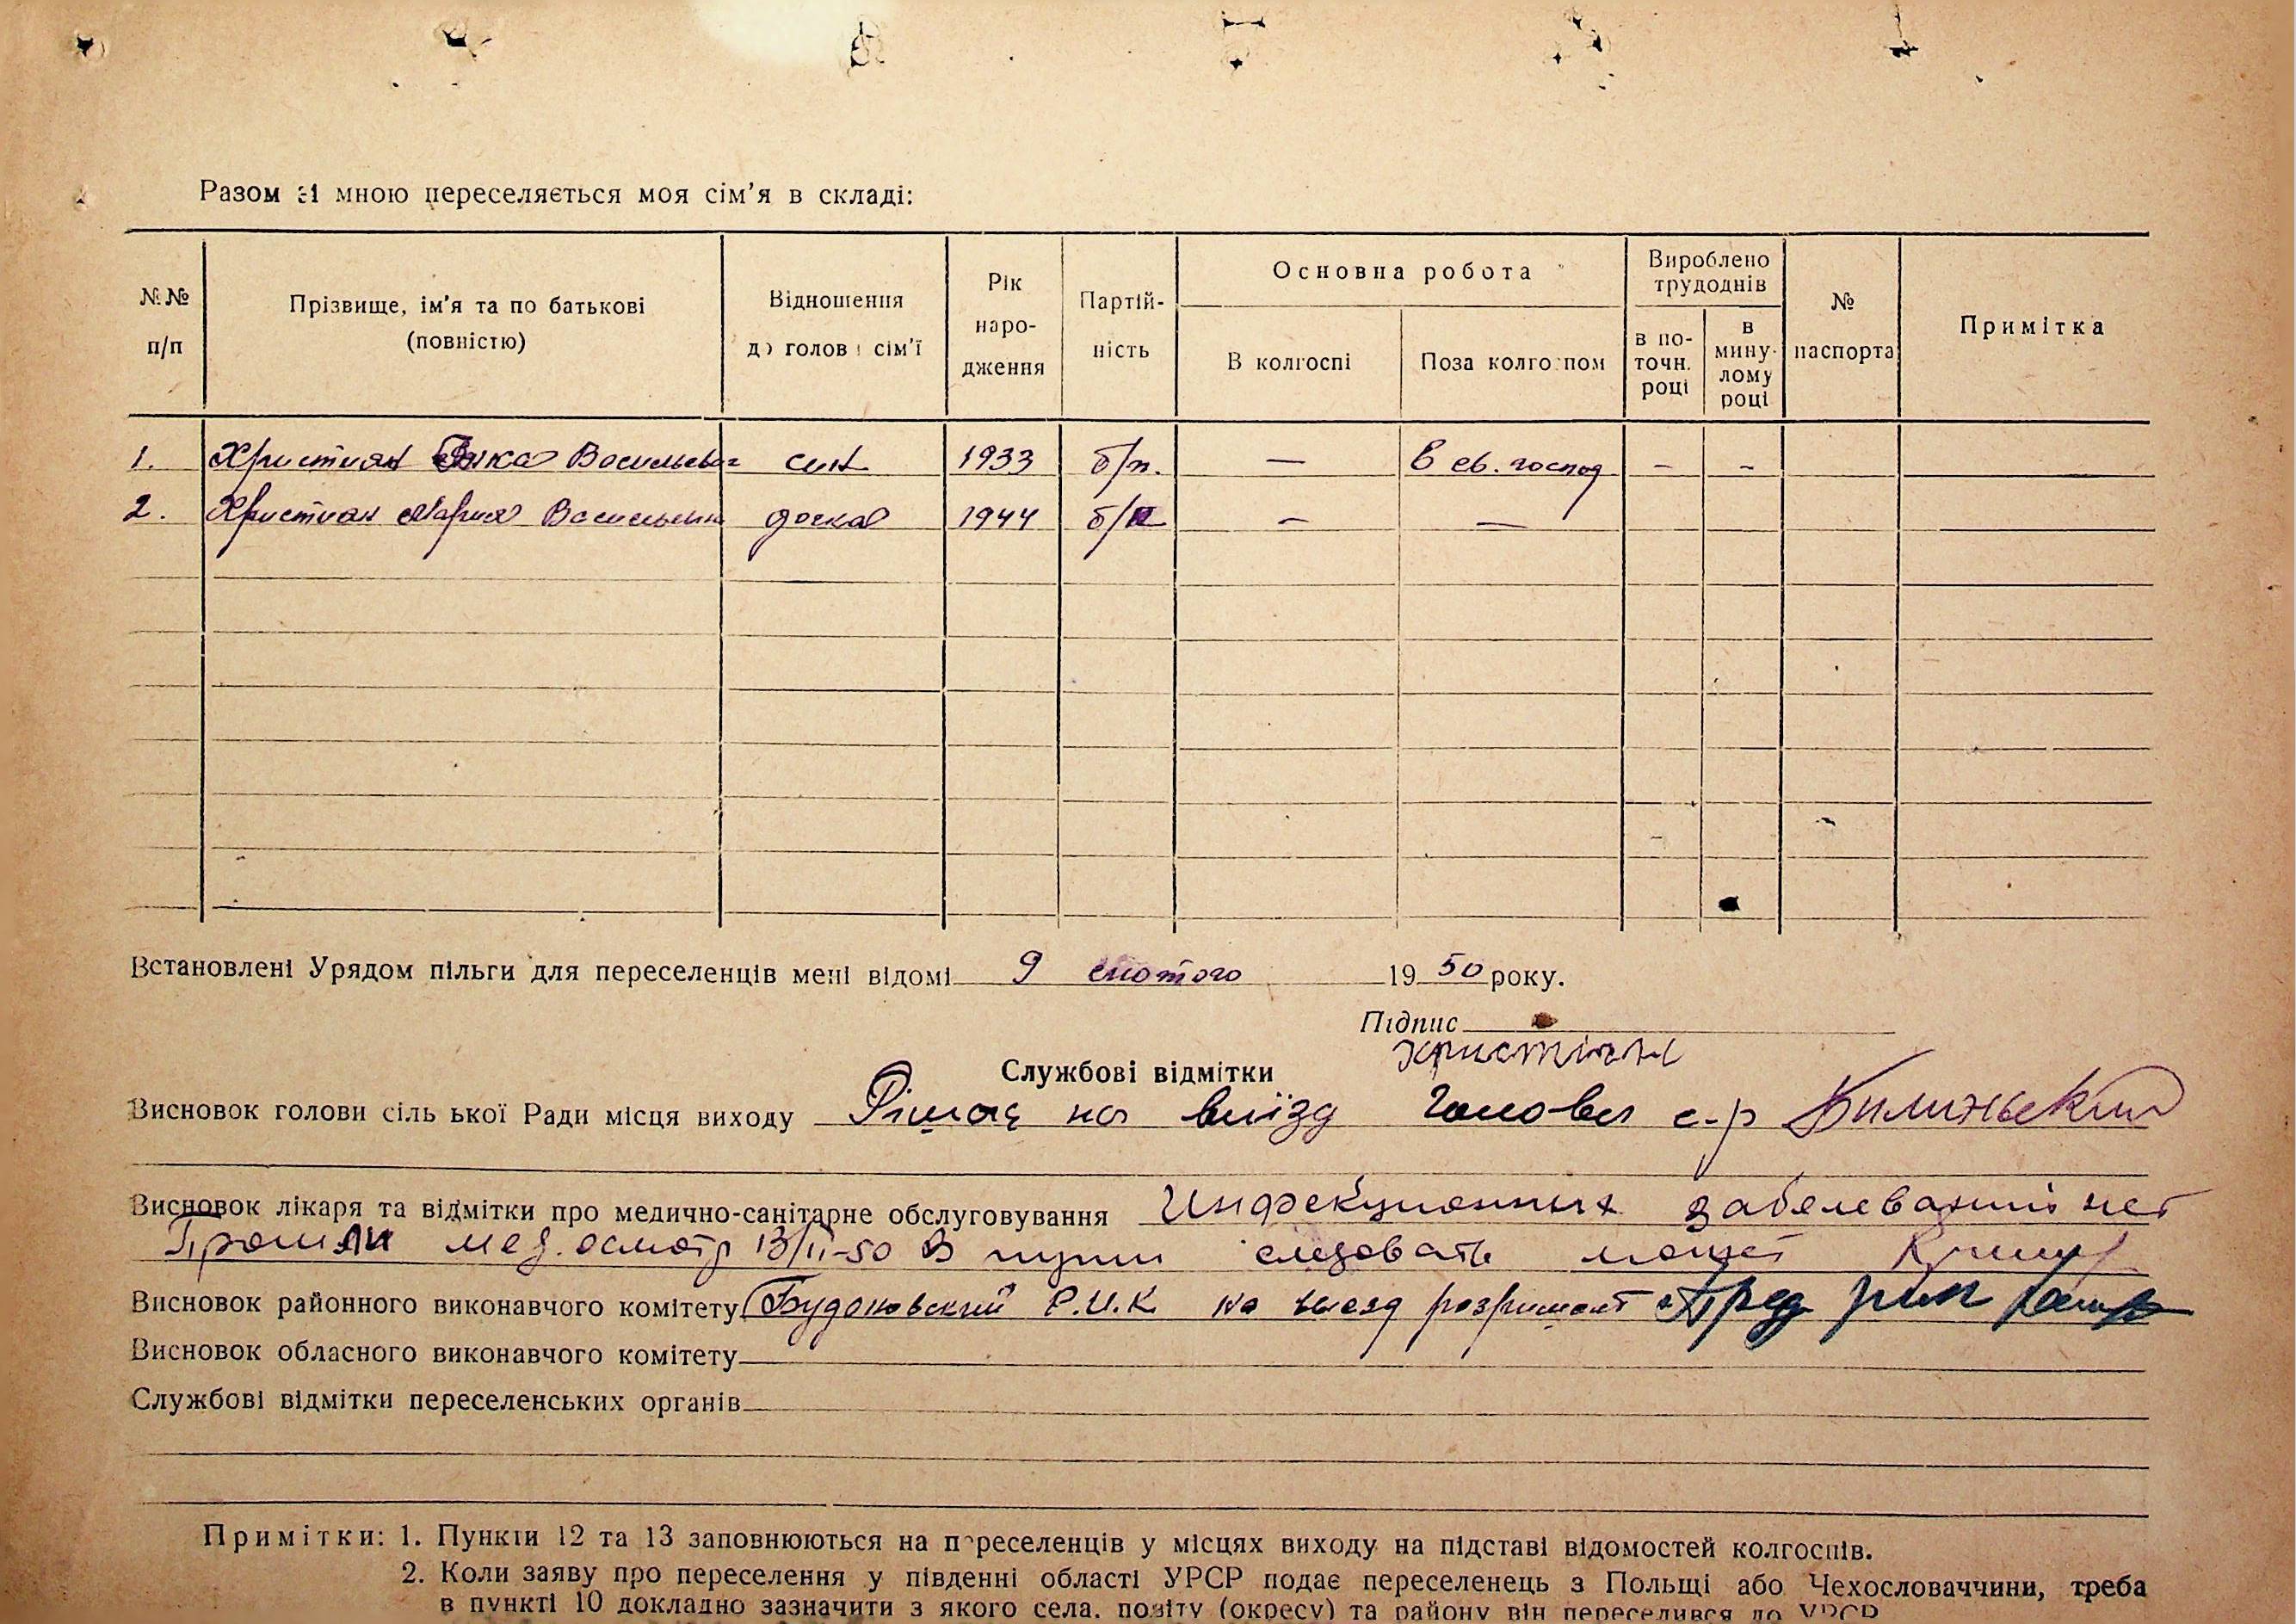 Разом зі мною переселяється моя сім'я в складі:
№№ п/п
Прізвище, ім'я та по батькові (повністю)
Відношення до голови сім'ї
Рік народження
Партій-ність
Основна робота
В колгоспі
Поза колгоспом
Вироблено трудоднів
в по-точн. році
в мину-лому році
№ паспорта
Примітка
1. Християн Васильев син 1933 б/п. — в св. господ - -
2. Християн Мария Васильевн дочка 1944 б/п — —
Встановлені Урядом пільги для переселенців мені відомі 9 лютого 1950 року.
Підпис
Християн
Службові відмітки
Висновок голови сільської Ради місця виходу Рішає на виїзд Голова с-р Билинський
Висновок лікаря та відмітки про медично-санітарне обслуговування Инфекционных заболеваний нет
Прошли мед. осмотр 13/II-50 В пути следовать может
Висновок районного виконавчого комітету Будоновский Р.И.К на выезд розришает Пред рик
Висновок обласного виконавчого комітету
Службові відмітки переселенських органів
Примітки: 1. Пункти 12 та 13 заповнюються на переселенців у місцях виходу на підставі відомостей колгоспів.
2. Коли заяву про переселення у південні області УРСР подає переселенець з Польщі або Чехословаччини, треба
в пункті 10 докладно зазначити з якого села, повіту (округу) та району він переселився до УРСР